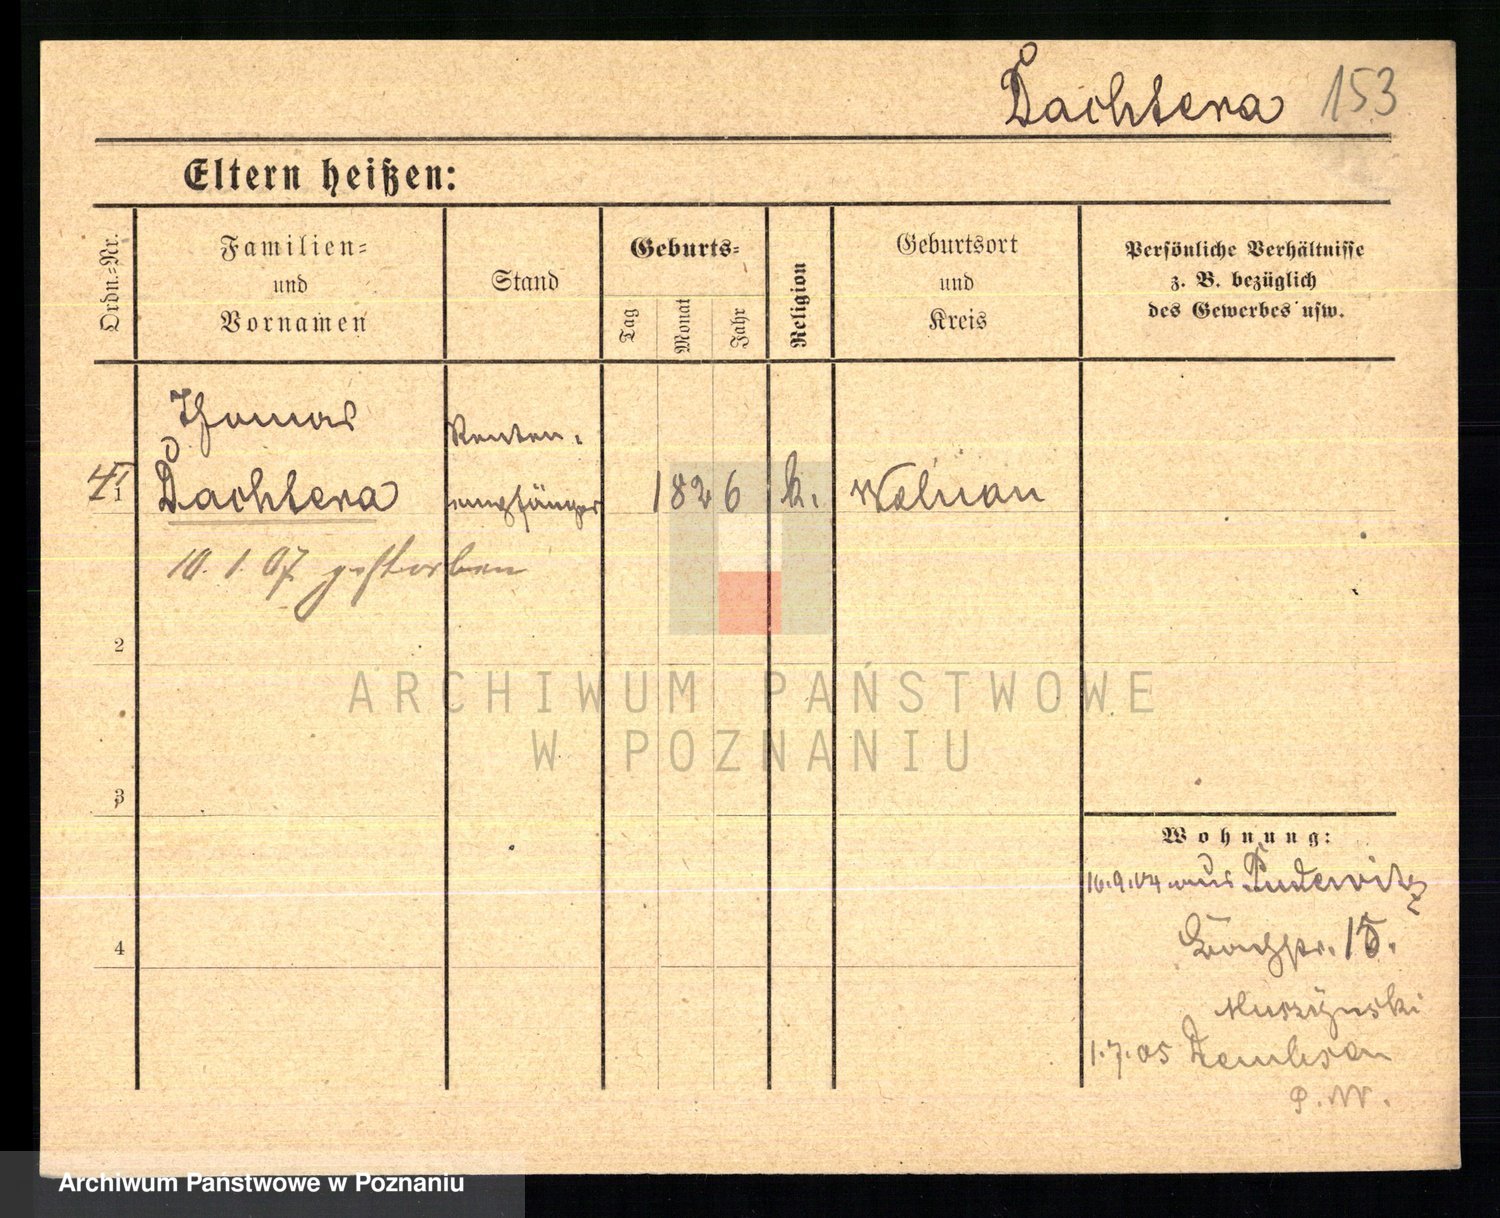 Dachtera 153
Eltern heißen:
Ordn.=Nr.
Familien=
und
Vornamen
Stand
Geburts=
Tag
Monat
Jahr
Religion
Geburtsort
und
Kreis
Persönliche Verhältnisse
z. B. bezüglich
des Gewerbes usw.
Thomas
Dachtera
Renten-
empfänger
1826
k.
Welnau
1
10. 1. 07 gestorben
2
3
4
Wohnung:
10.9.04 aus Pudewitz
15.
Muszynski
1.7.05 Dembsen
P. W.
ARCHIWUM PAŃSTWOWE
W POZNANIU
Archiwum Państwowe w Poznaniu